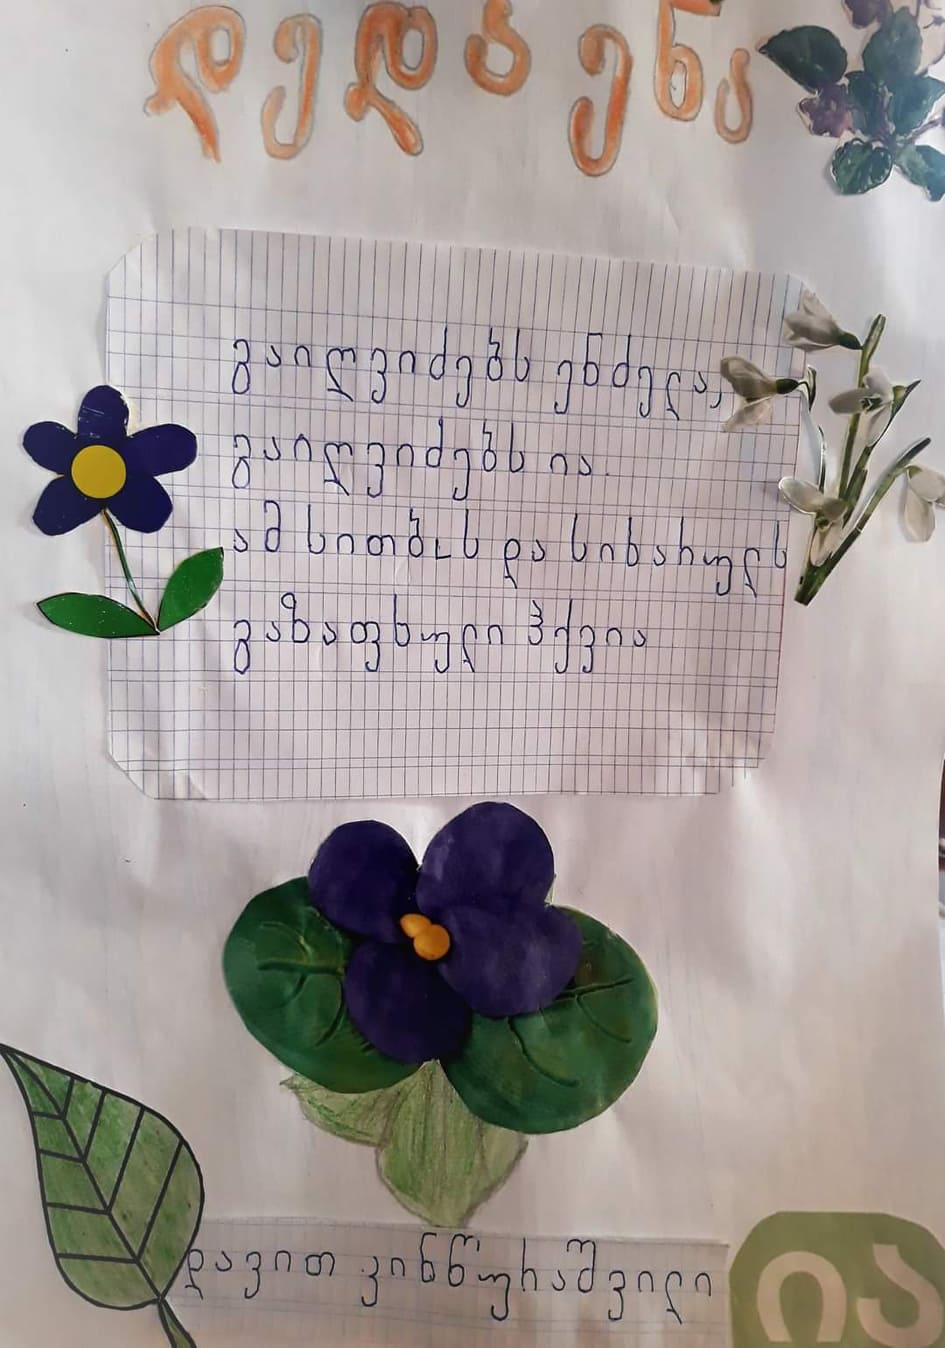 დედა ენა
გაიღვიძებს ენძელა,
გაიღვიძებს ია.
ამ სითბოს და სიხარულს
გაზაფხული ჰქვია
დავით კინწურაშვილი
ია